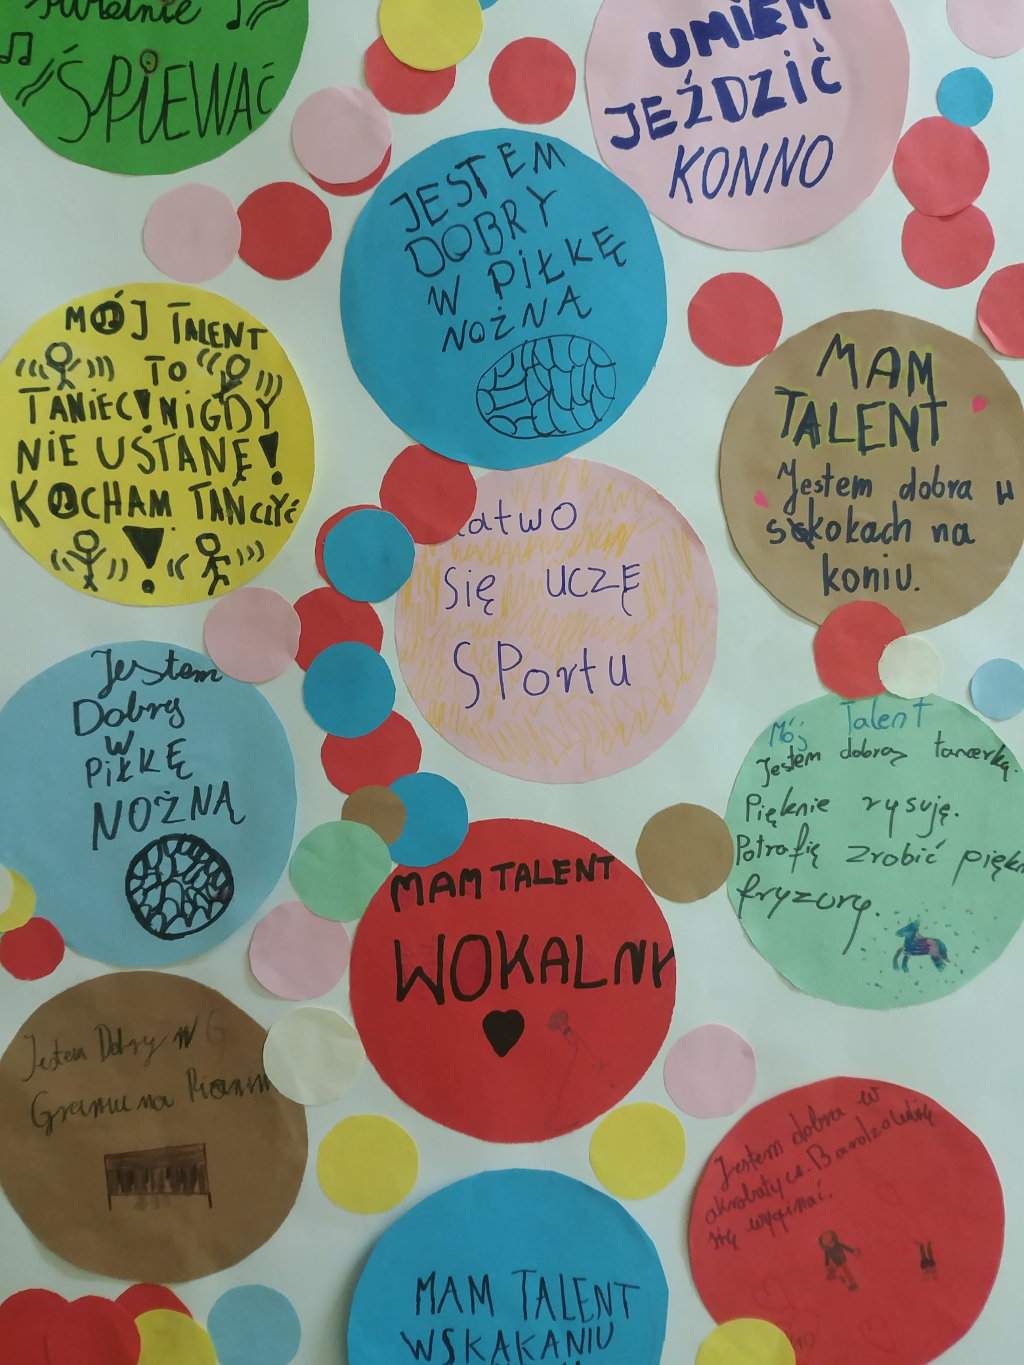 świetnie
ŚPIEWAĆ
UMIEM
JEŹDZIĆ
KONNO
JESTEM
DOBRY
W PIŁKĘ
NOŻNĄ
MÓJ TALENT
TO
TANIEC! NIGDY
NIE USTANĘ!
KOCHAM TAŃCZYĆ
!
MAM
TALENT
Jestem dobra w
skokach na
koniu.
Łatwo
się uczę
Sportu
Jestem
Dobry
w
PiŁKĘ
NOŻNĄ
Mój Talent
Jestem dobrą tancerką.
Pięknie rysuję.
Potrafię zrobić
fryzurę.
MAM TALENT
WOKALNY
Jestem Dobry w G
Graniu na
Jestem dobra w
akrobatyce. Bardzo lubię
się wyginać.
MAM TALENT
W SKAKANIU